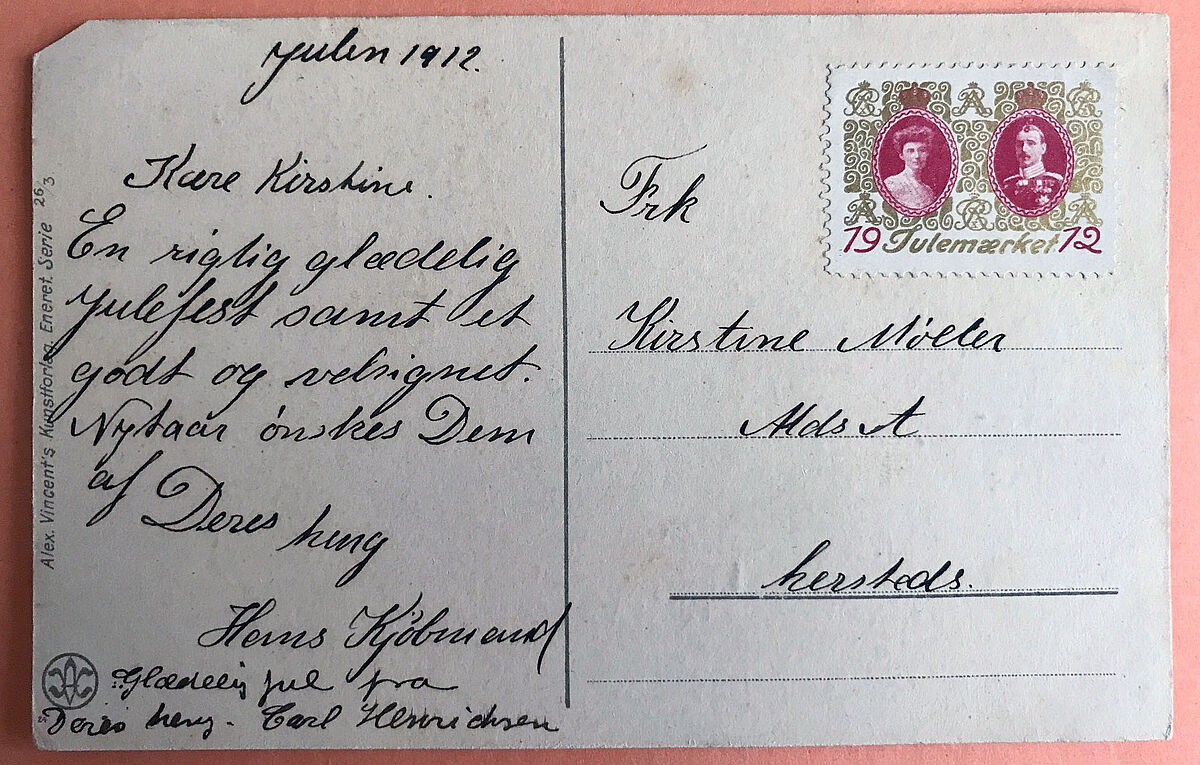 Julen 1912.
Kære Kirstine.
En rigtig glædelig
Julefest samt et
godt og velsignet.
Nytaar ønskes Dem
af Deres heng
Hans Kjöbmand
Glædelig jul fra
Deres heng. Carl Henrichsen
Alex. Vincent's Kunstforlag Eneret. Serie 26/3
19 Julemærket 12
Frk
Kirstine Møller
hersteds.